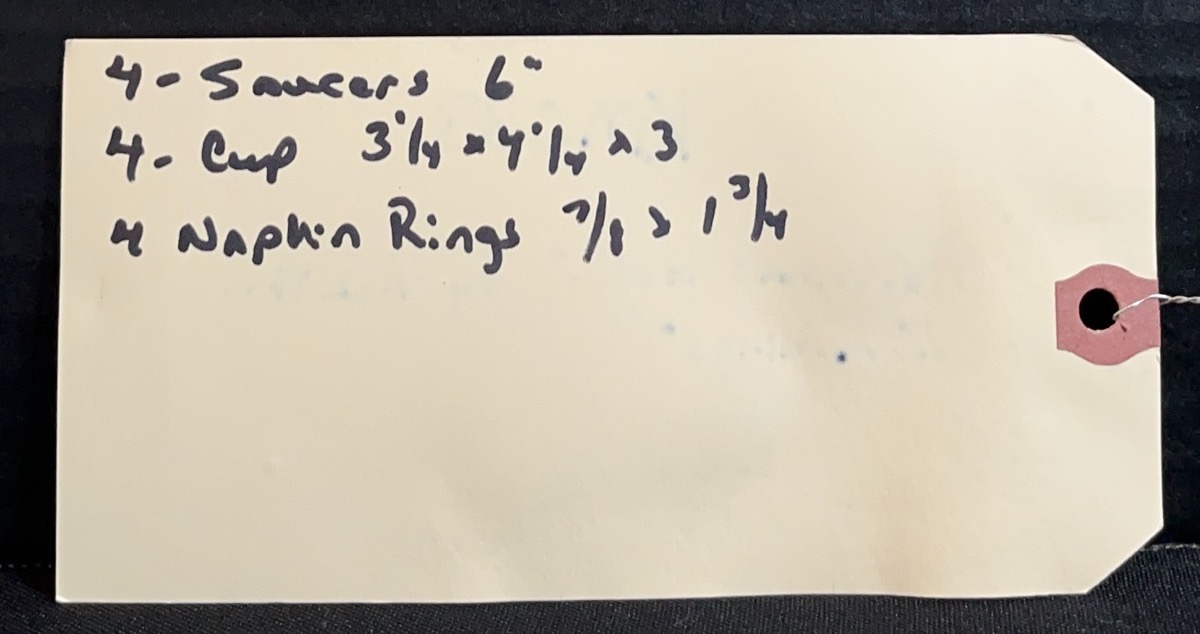 4- Saucers 6"
4- Cup 3 1/4 x 4 1/4 x 3
4 Napkin Rings 7/8 x 1 3/4